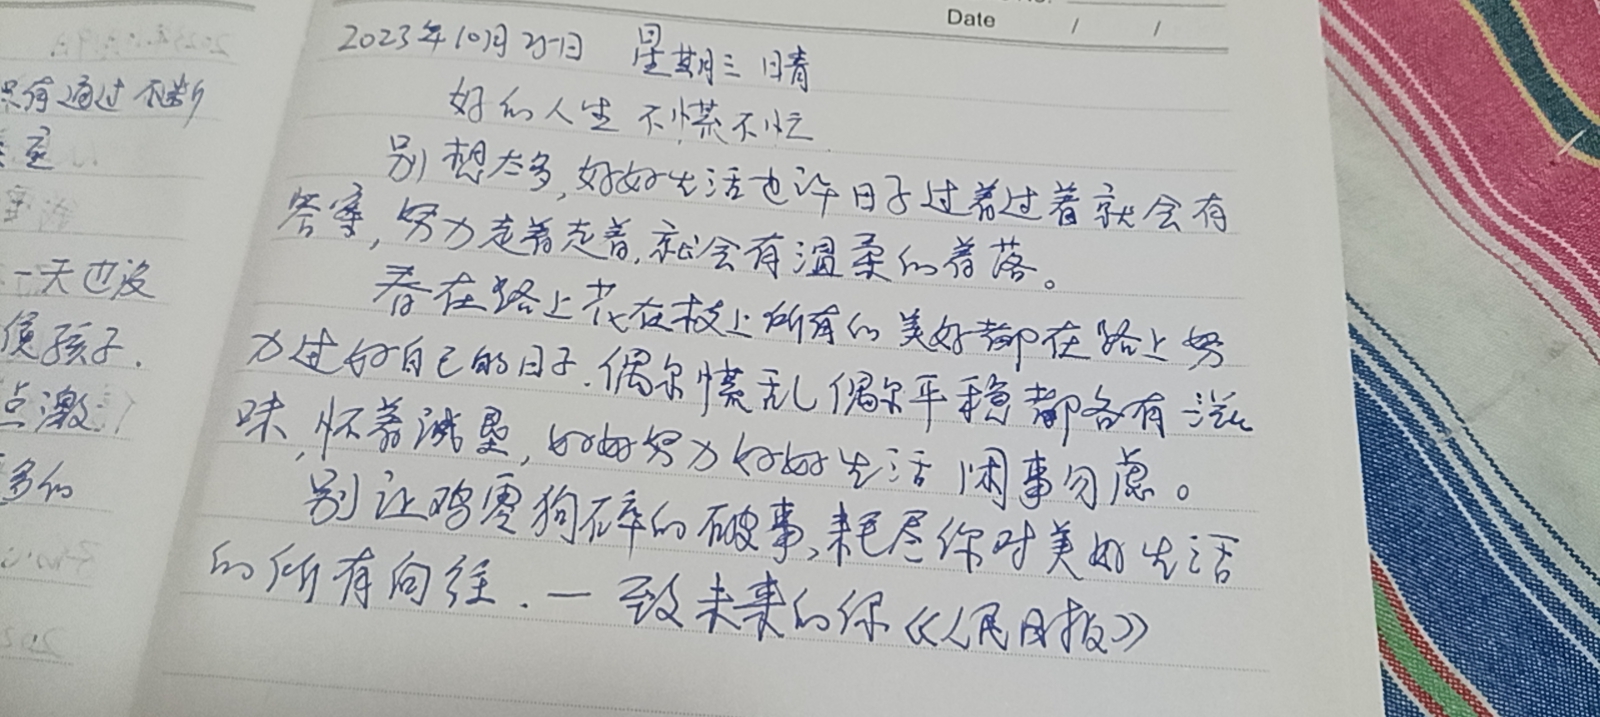 只有通过不断
一天也没
孩子.
点激
多的
Date / /
2023年10月25日 星期三 晴
好的人生 不慌不忙
别想太多,好好生活也许日子过着过着就会有
答案,努力走着走着,就会有温柔的着落。
春在路上花在枝上所有的美好都在路上努
力过好自己的日子.偶尔慌乱偶尔平稳都各有滋
味,怀着诚恳,好好努力好好生活 闲事勿虑。
别让鸡零狗碎的破事,耗尽你对美好生活
的所有向往.一致未来的你《人民日报》